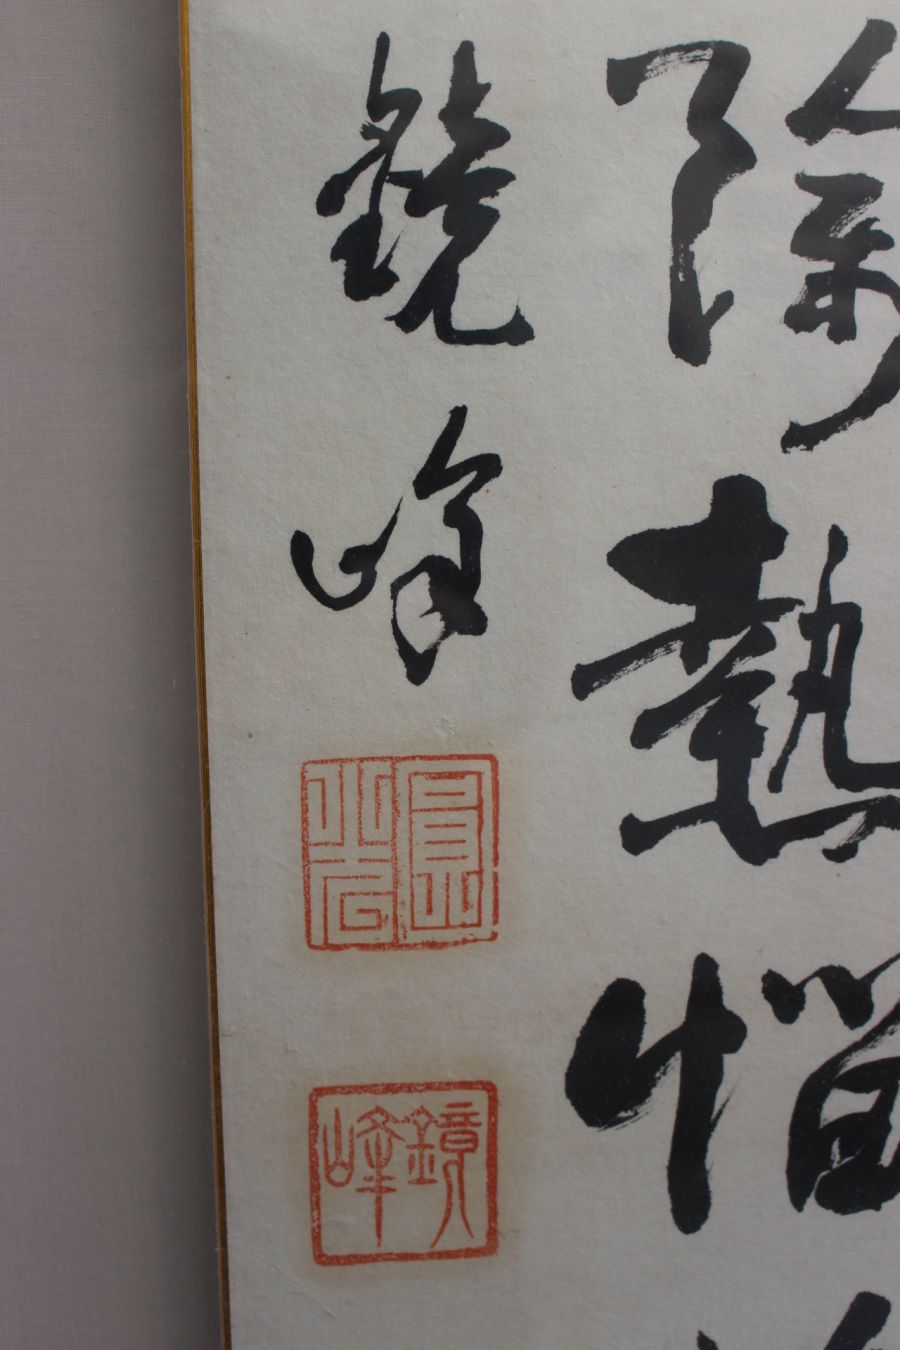 除熱惱
鏡峰
鏡峰